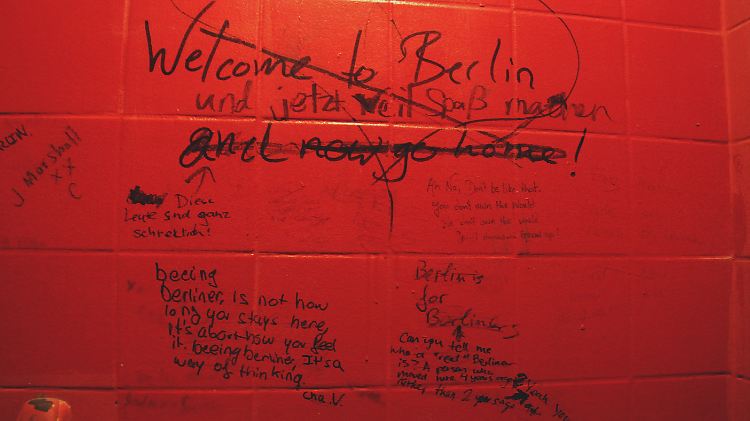 Welcome to Berlin
und jetzt viel Spaß machen
and now go home!
J Marshall
xx
C
Diese
Leute sind ganz
schrecklich!
Ah No, Don't be like that.
You don't own the world
We don't own the world
beeing
Berliner, is not how
long you stays here,
It's about how you feel
it. beeing berliner, It's a
way of thinking.
Cha.V.
Berlin is
for
Berliners
Can you tell me
who a "real" Berliner
is? A person who
moved here 4 years ago
rather than 2 years ago
Yeah You